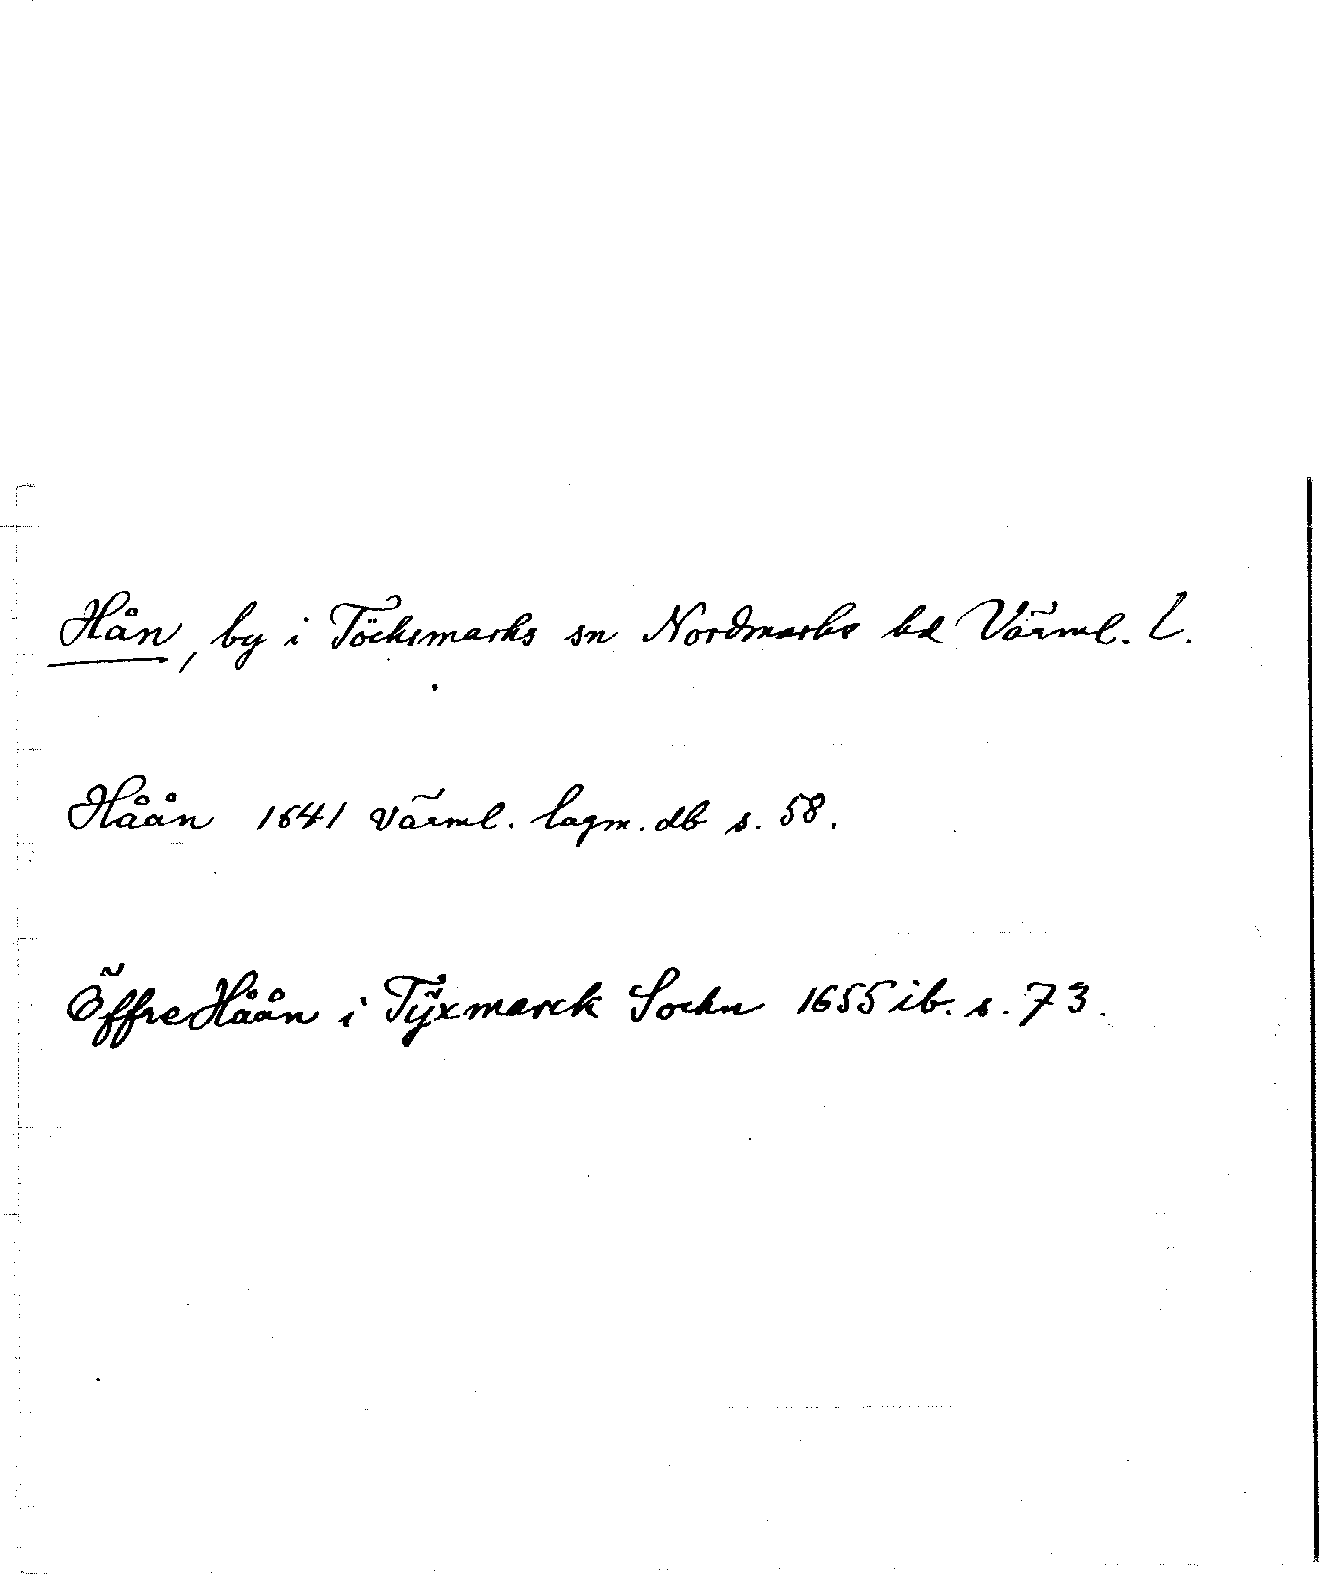 Hån, by i Töcksmarks sn Nordmarks hd Värml. l.
Håån 1641 Värml. lagm. db s. 58.
Öffre Håån i Tÿxmarck Sockn 1655 ib. s. 73.